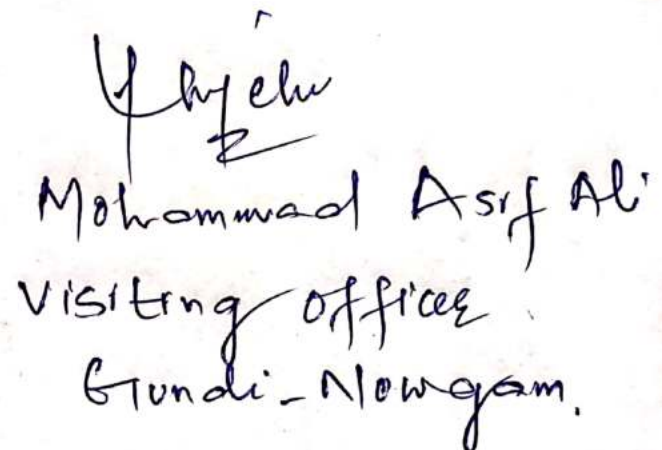 Mohammad Asif Ali
Visiting officer.
Gundi-Nowgam.